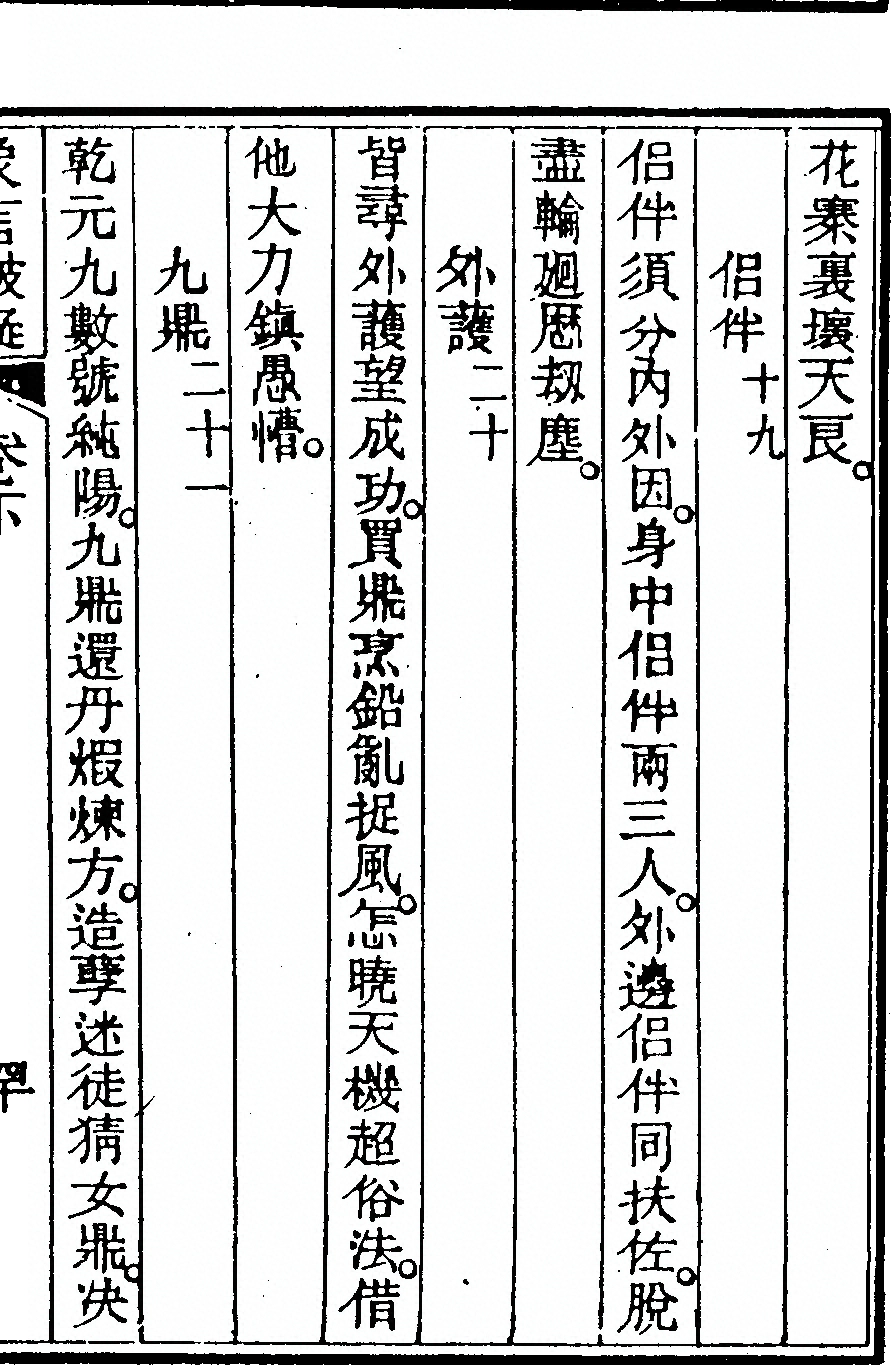 花寨裏壞天良。
侣伴十九
侣伴須分內外因。身中侣伴兩三人。外邊侣伴同扶佐。脫
盡輪廻厯刼塵。
外護二十
皆尋外護望成功。買鼎烹鉛亂捉風。怎曉天機超俗法。借
他大力鎮愚懵。
九鼎二十一
乾元九數號純陽。九鼎還丹煆煉方。造孽迷徒猜女鼎。决
象言破疑
卷下